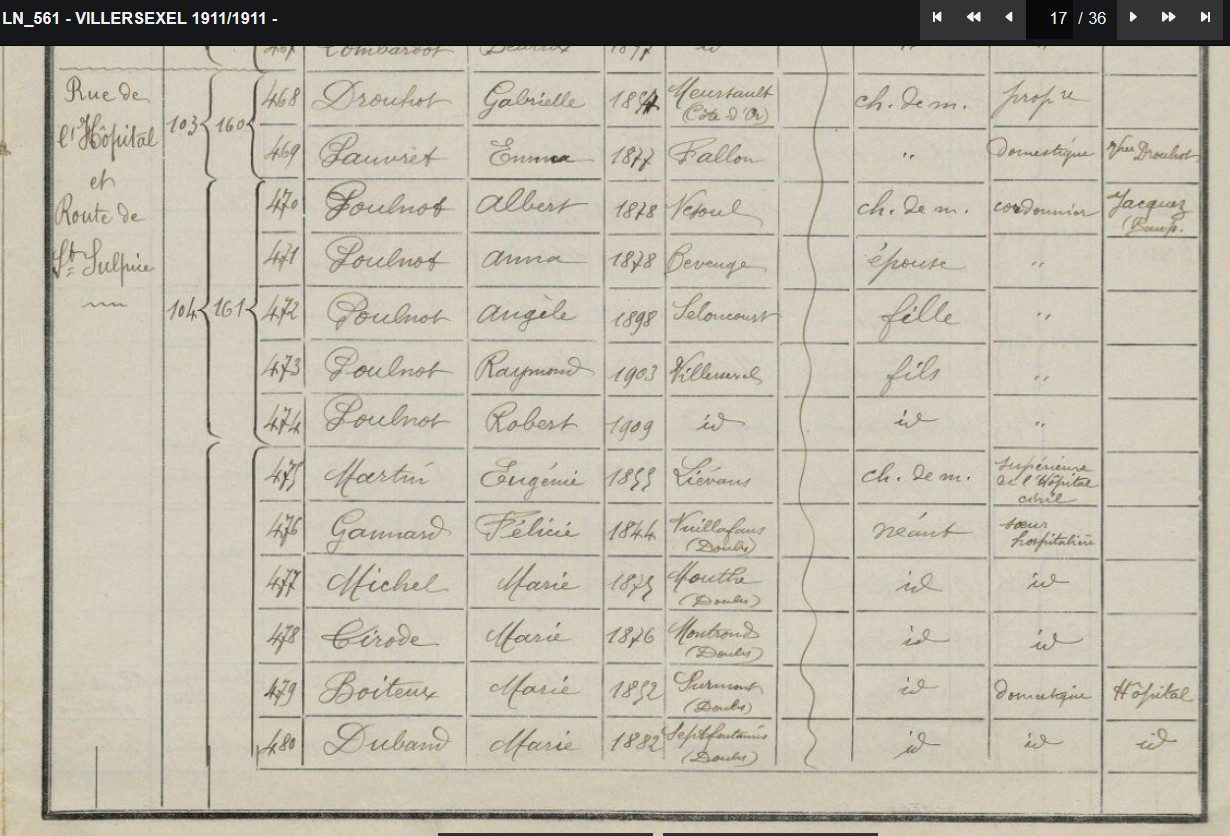 LN_561 - VILLERSEXEL 1911/1911 -
17 / 36
Rue de
l'Hôpital
et
Route de
St Sulpice
103 160 468 Drouhot Gabrielle 1854 Meursault (Côte d'Or) ch. de m. propre
469 Pauvret Emma 1877 Fallon " domestique Vve Drouhot
104 161 470 Poulnot Albert 1878 Vesoul ch. de m. cordonnier Jacquez
471 Poulnot Anna 1878 Beveuge épouse "
472 Poulnot Angèle 1898 Seloncourt fille "
473 Poulnot Raymond 1903 Villersexel fils "
474 Poulnot Robert 1909 id id "
475 Martin Eugénie 1855 Liévans ch. de m. supérieure de l'Hôpital civil
476 Gannard Félicie 1844 Vuillafans (Doubs) néant sœur hospitalière
477 Michel Marie 1875 Mouthe (Doubs) id id
478 Cirode Marie 1876 Montrond (Doubs) id id
479 Boiteux Marie 1852 Surmont (Doubs) id domestique Hôpital
480 Duband Marie 1882 Septfontaines (Doubs) id id id